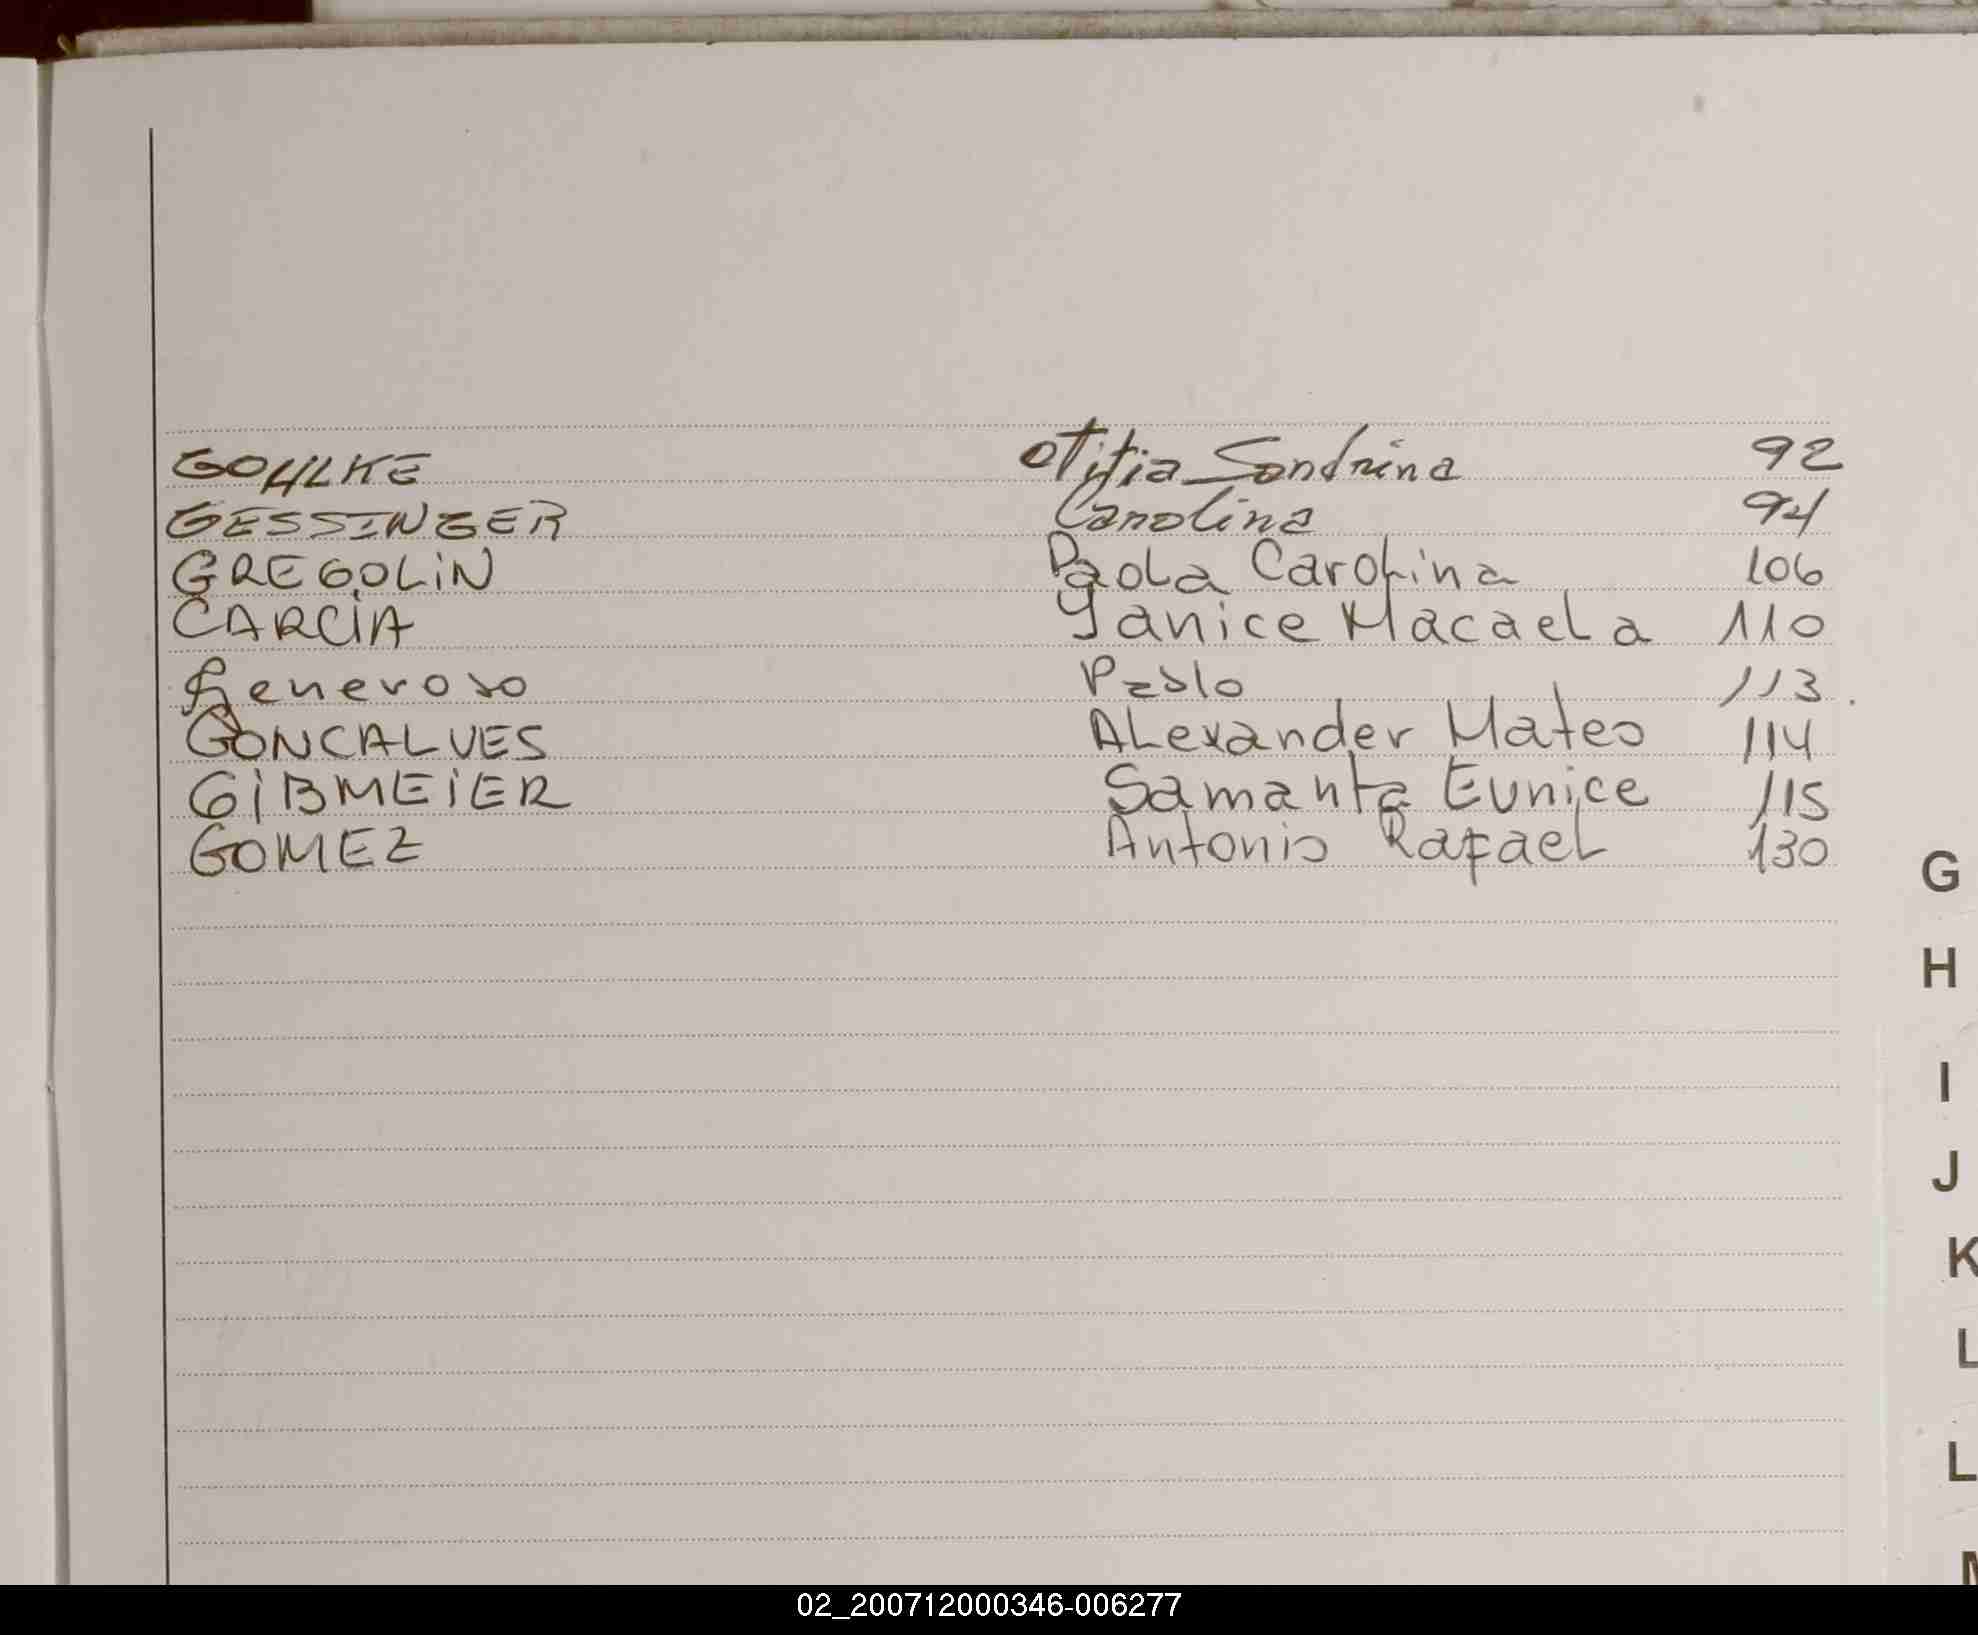 GOHLKE Otitia Sandrina 92
GESSINGER Carolina 94
GREGOLIN Paola Carolina 106
GARCIA Yanice Macaela 110
Generoso Pablo 113.
GONCALVES Alexander Mateo 114
GIBMEIER Samanta Eunice 115
GOMEZ Antonio Rafael 130
G
H
I
J
K
L
L
02_200712000346-006277